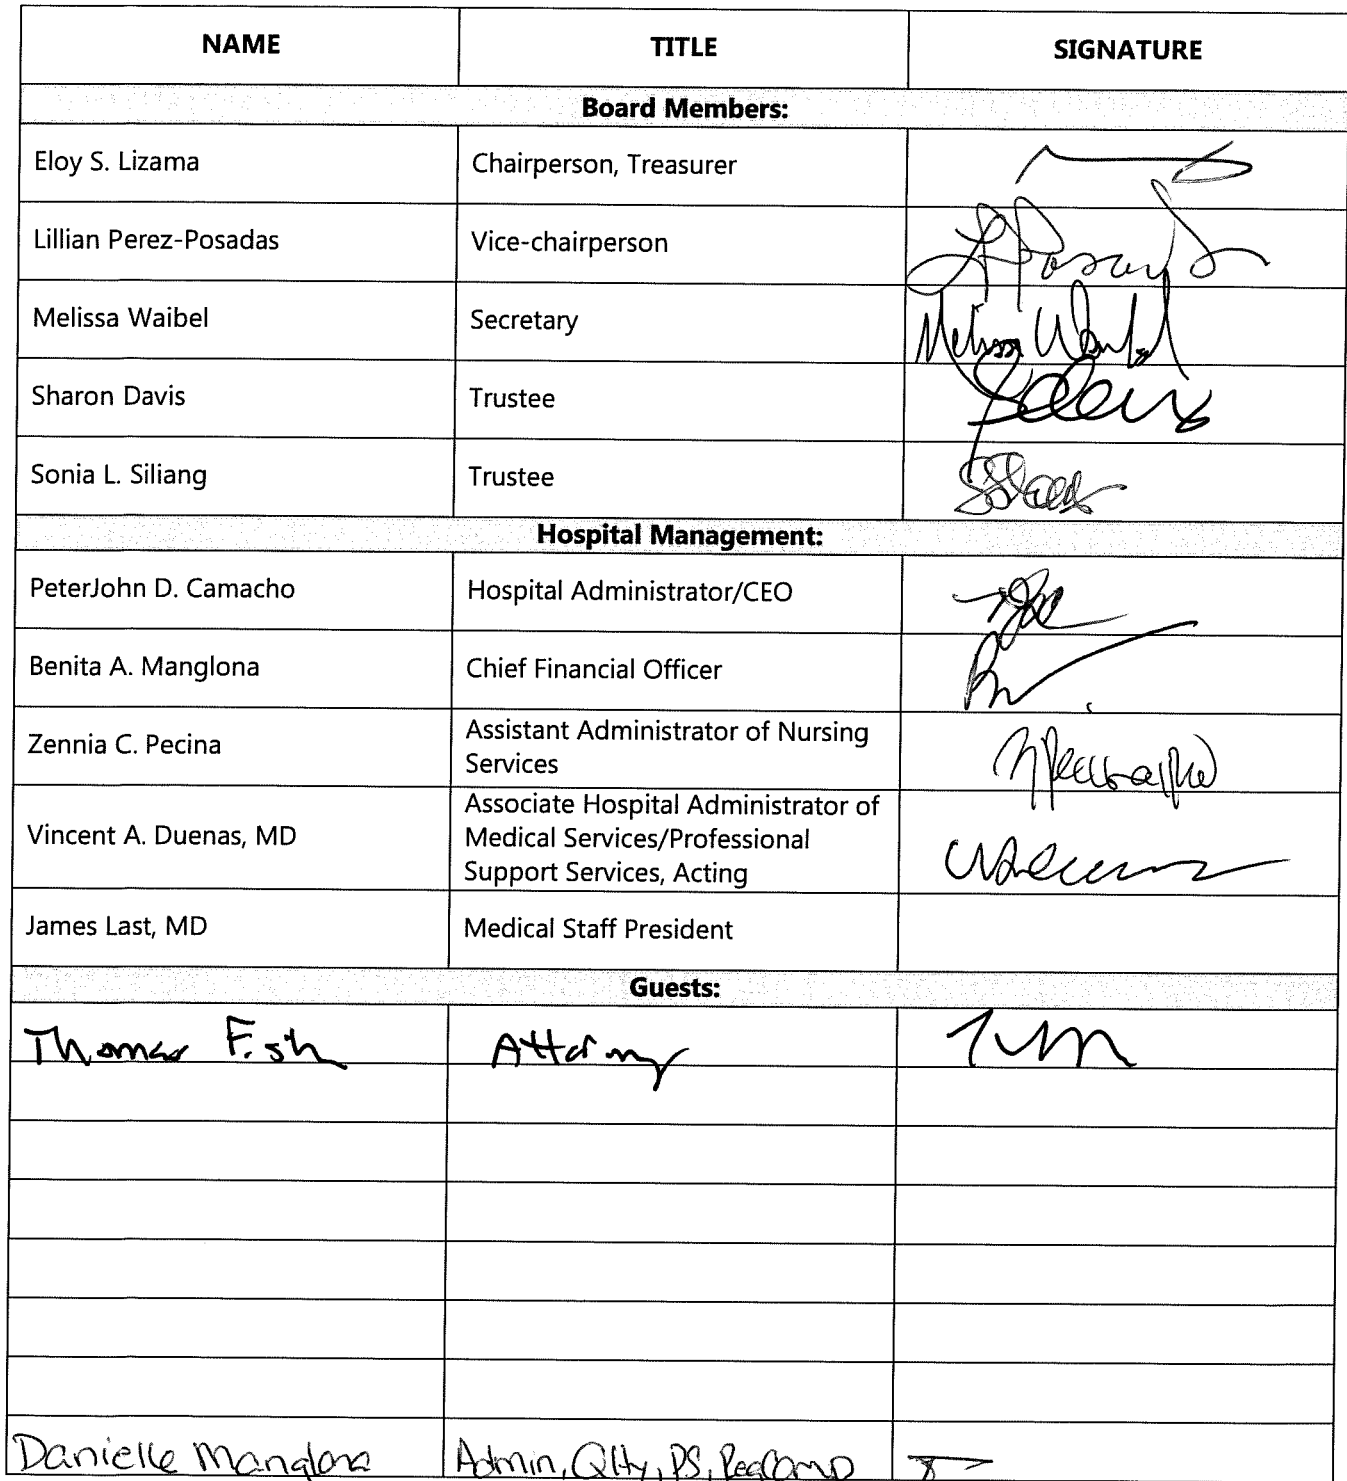 NAME TITLE SIGNATURE
Board Members:
Eloy S. Lizama Chairperson, Treasurer
Lillian Perez-Posadas Vice-chairperson
Melissa Waibel Secretary Melissa Waibel
Sharon Davis Trustee
Sonia L. Siliang Trustee
Hospital Management:
PeterJohn D. Camacho Hospital Administrator/CEO
Benita A. Manglona Chief Financial Officer
Zennia C. Pecina Assistant Administrator of Nursing
Services
Vincent A. Duenas, MD Associate Hospital Administrator of
Medical Services/Professional
Support Services, Acting
James Last, MD Medical Staff President
Guests:
Thomas Fish Attorney
Danielle Manglona Admin, Qlty, PS, RegComp